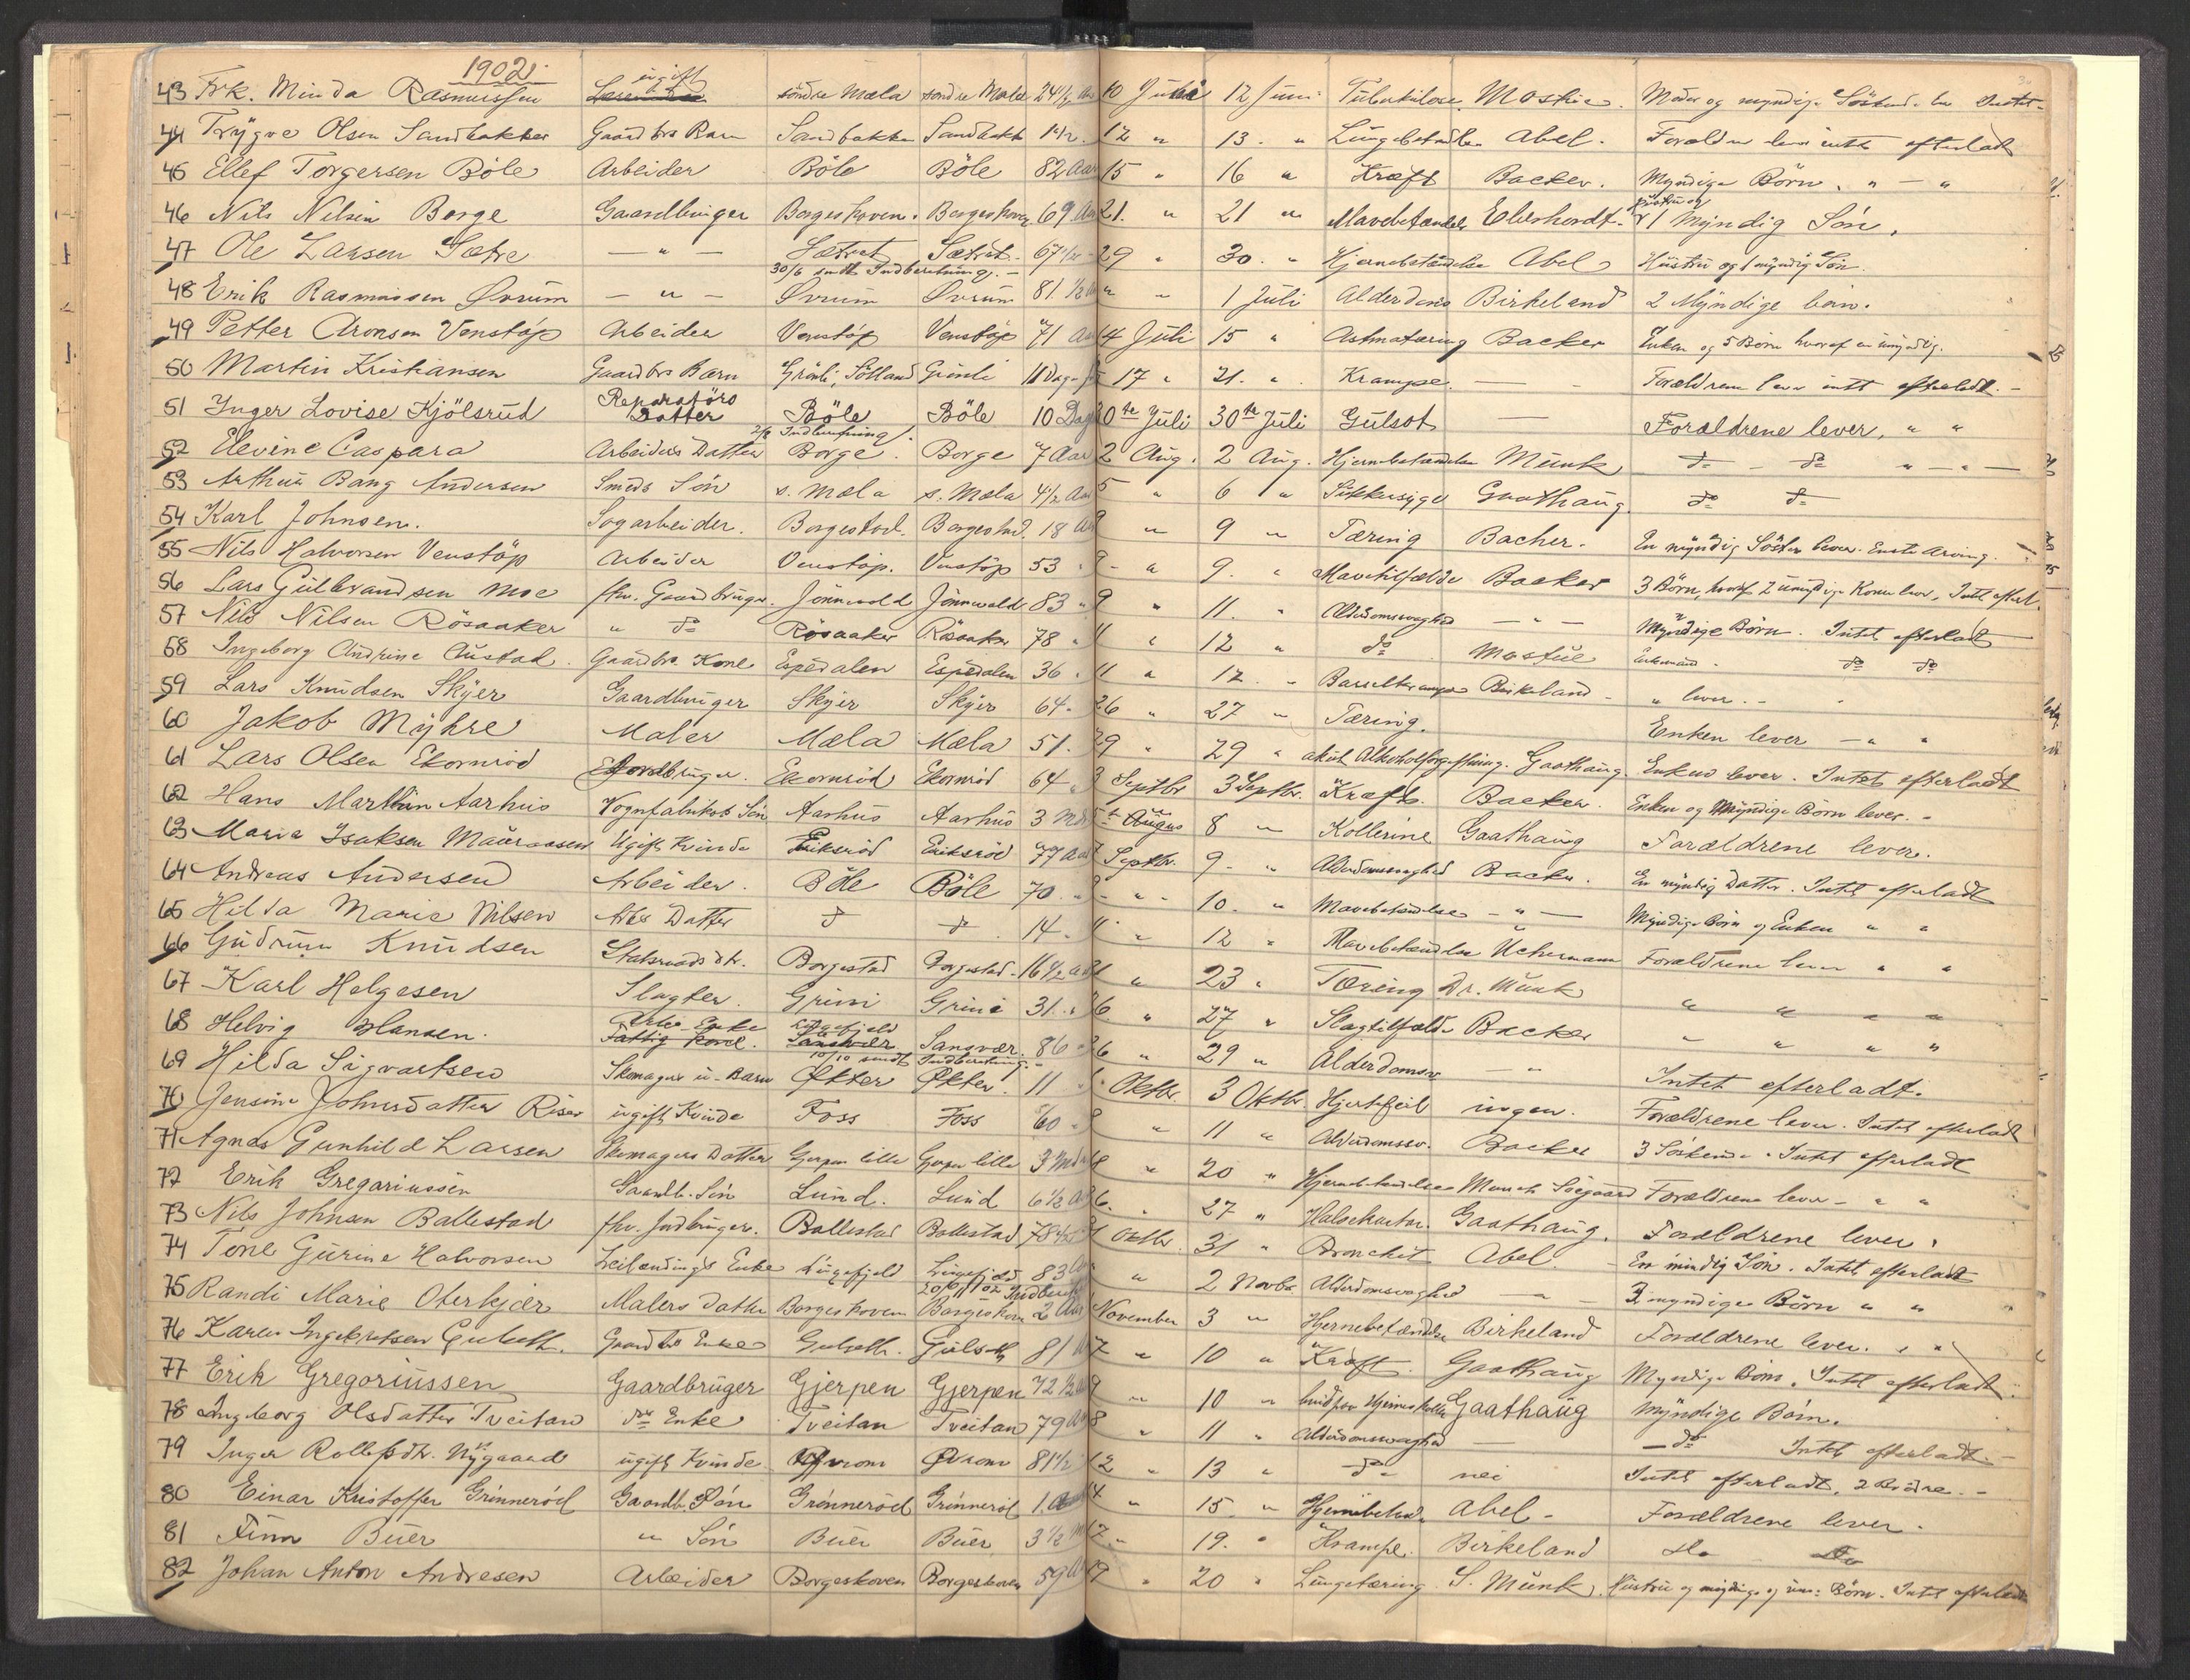 1902
43 Frk. Minda Rasmussen ugift söndre Mæla söndre Mæla 24 1/2 10 Juni 12 Juni Tuberkulose Moder og myndige Intet
44 Trygve Olsen Sandbakken Gaardbrs Barn Sandbakken Sandbakk 1 1/2 12 " 13. " Lungebetændelse Abel. Forældrene lever intet efterladt
45 Ellef Torgersen Böle Arbeider Böle Böle 82 Aar 15 " 16 " Kræft Backer. Myndige Börn. " — "
46 Nils Nilsen Borge Gaardbruger Borgeskoven. Borgeskoven 69 Aar 21. " 21 " Mavebetændelse Hustru og 1 Myndig Sön.
47 Ole Larsen Sætre — " — Sætret Sætret 67 1/2 29 " 30. " Hjernebetændelse Abel Hustru og 1 myndig Sön.
30/6 sendt Indberetning. —
48 Erik Rasmussen Øvrum — " — Øvrum Øvrum 81. 1/2 " " 1 Juli Alderdoms Birkeland 2 Myndige börn.
49 Petter Aronsen Venstöp Arbeider Venstöp Venstöp 71 Aar 14 Juli 15 " Astmatæring Backer Enken og 5 Börn hvoraf en umyndig.
50 Martin Kristiansen Gaardbrs Barn Grönli, Grönli 11 Dage 17 " 21. " Krampe. — Forældrene lever intet efterladt. —
51 Inger Lovise Kjölsrud Reparatörs Datter Böle Böle 10 Dage 30te Juli 30te Juli Gulsot — Forældrene lever, " "
2/8 Indberetning.
52 Elevine Caspara Arbeiders Datter Borge. Borge 7 Aar 2 Aug. 2 Aug. Hjernebetændelse Munk do — do " — " —
53 Arthur Bang Andersen Smeds Sön s. Mæla s. Mæla 4 1/2 Aar 5 " 6 " Sukkersyge Gaathaug. do do
54 Karl Johnsen. Sagarbeider. Borgestad. Borgestad. 18 Aar 9 " 9 " Tæring Backer. En myndig Söster lever. Eneste Arving.
55 Nils Halvorsen Venstöp Arbeider Venstöp. Venstöp 53 " 9 - " 9. " Mavetilfælde Backer 3 Börn, hvoraf 2 umyndige Konen lever, Intet efterl.
56 Lars Gulbrandsen Moe fhv. Gaardbruger. Jönnevald Jönnevald 83 " 9 " 11. " Alderdomssvaghed — " — Myndige Börn. Intet efterladt
57 Nils Nilsen Rösaaker " do Rösaaker Rösaaker 78 " 11 " 12 " do Mostue Enkemand. do do
58 Ingeborg Andrine Austad. Gaardbrs. Kone Espedalen Espedalen 36 " 11 " 12. " Barselkrampe Birkeland — " lever. — "
59 Lars Knudsen Skyer Gaardbruger Skyer Skyer 64 " 26 " 27 " Tæring. Enken lever — " "
60 Jakob Myhre Maler Mæla Mæla 51. 29 " 29 " akut Alkoholforgiftning. Gaathaug. Enken lever. Intet efterladt
61 Lars Olsen Ekornröd Gaardbruger. Ekornröd Ekornröd 64 " 3 Septbr 3 Septbr. Kræft. Backer. Enken og Myndige Börn lever. —
62 Hans Martin Aarhus Vognfabrikants Sön Aarhus Aarhus 3 Mdr 5te August 8 " Kollerine Gaathaug Forældrene lever.
63 Maria Isaksen Mauraasen Ugift Kvinde Eriksröd Eriksröd 77 Aar 7 Septbr. 9 - " Alderdomssvaghed Backer. En myndig Datter. Intet efterladt
64 Andreas Andersen Arbeider. Böle Böle 70 " 9 - " - 10. " Mavebetændelse — " — Myndige Börn og Enken " "
65 Hilda Marie Nilsen Arbs Datter do do 14 " 11 " 12 " Mavebetændelse Uchermann Forældrene lever " "
66 Gudrun Knudsen Statsraads dtr. Borgestad Borgestad 16 1/2 Aar 21 " 23 " Tæring Dr. Munk " " " "
67 Karl Helgesen Slagter. Grini Grini 31. " 26. " 27 " Slagtilfælde Backer " " " "
68 Helvig Hansen. Arbs. Enke Lutefjeld Sansvær. 86 " 26 " 29 " Alderdomssv — " Intet efterladt.
10/10 sendt Indberetning. —
69 Hilda Sigvartsen Skomager u- Barn Økter Økter 11 1 Oktbr. 3 Oktbr. Hjertefeil ingen. Forældrene lever. Intet efterladt
70 Jensine Johnsdatter Riser ugift Kvinde Foss Foss 60 " 8 " 11 " Alderdomssv. Backer 3 Söskende. Intet efterladt
71 Agnes Gunhild Larsen Skomagers Datter Gjerpen lille Gjerpen lille 3 Mdr 18 " 20 " Hjernebetændelse Munch Söegaard Forældrene lever — " "
72 Erik Gregoriussen Gaardb. Sön Lund. Lund 6 1/2 Aar 26. " 27 " Halsekatar. Gaathaug. Forældrene lever.
73 Nils Johnsen Ballestad fhv. Jordbruger. Ballestad Ballestad 78 1/2 31 Oktbr. 31 " Bronchit Abel. En myndig Sön. Intet efterladt
74 Tone Gurine Halvorsen Leilændings Enke Luxefjeld Luxefjeld 83 Aar " 2 Novbr. Alderdomssvaghed — " — 3 myndige Börn " "
20/11 02 Indberetn
75 Randi Marie Oterkjær Malers datter Borgeskoven Borgeskoven 2 Aar November 3 " Hjernebetændelse Birkeland Forældrene lever. " "
76 Karen Ingebretsen Gulseth. Gaardbrs Enke Gulseth. Gulseth 81 Aar 7 " 10 " Kræft. Gaathaug Myndige Börn. Intet efterladt.
77 Erik Gregoriussen Gaardbruger Gjerpen Gjerpen 72 1/2 Aar 9 " 10 " Gaathaug Myndige Börn.
78 Ingeborg Olsdatter Tveitan do Enke Tveitan Tveitan 79 Aar 8 " 11 " Alderdomssvaghed — — do Intet efterladt. —
79 Inger Rollefsdtr. Nygaard ugift Kvinde Øvrom Øvrom 81 1/2 12 " 13 " do nei Intet efterladt. 2 Brödre. —
80 Einar Kristoffer Grönneröd Gaardb. Sön Grönneröd Grönneröd 1. 14 " 15. " Hjernebetænd. Abel — Forældrene lever.
81 Finn Buer " Sön Buer Buer 3 1/2 M 17 " 19. " Krampe. Birkeland do do
82 Johan Anton Andresen Arbeider Borgeskoven Borgeskoven 59 Aar 19 " 20 " Lungetæring S. Munk. Hustru og myndige og um: Börn. Intet efterladt